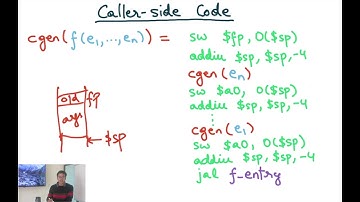 Caller-side Code
cgen(f(e₁,...,eₙ)) = sw $fp, 0($sp)
addiu $sp, $sp, -4
cgen(eₙ)
sw $a0, 0($sp)
addiu $sp, $sp, -4
⋮
cgen(e₁)
sw $a0, 0($sp)
addiu $sp, $sp, -4
jal f_entry
old fp
args
← $sp